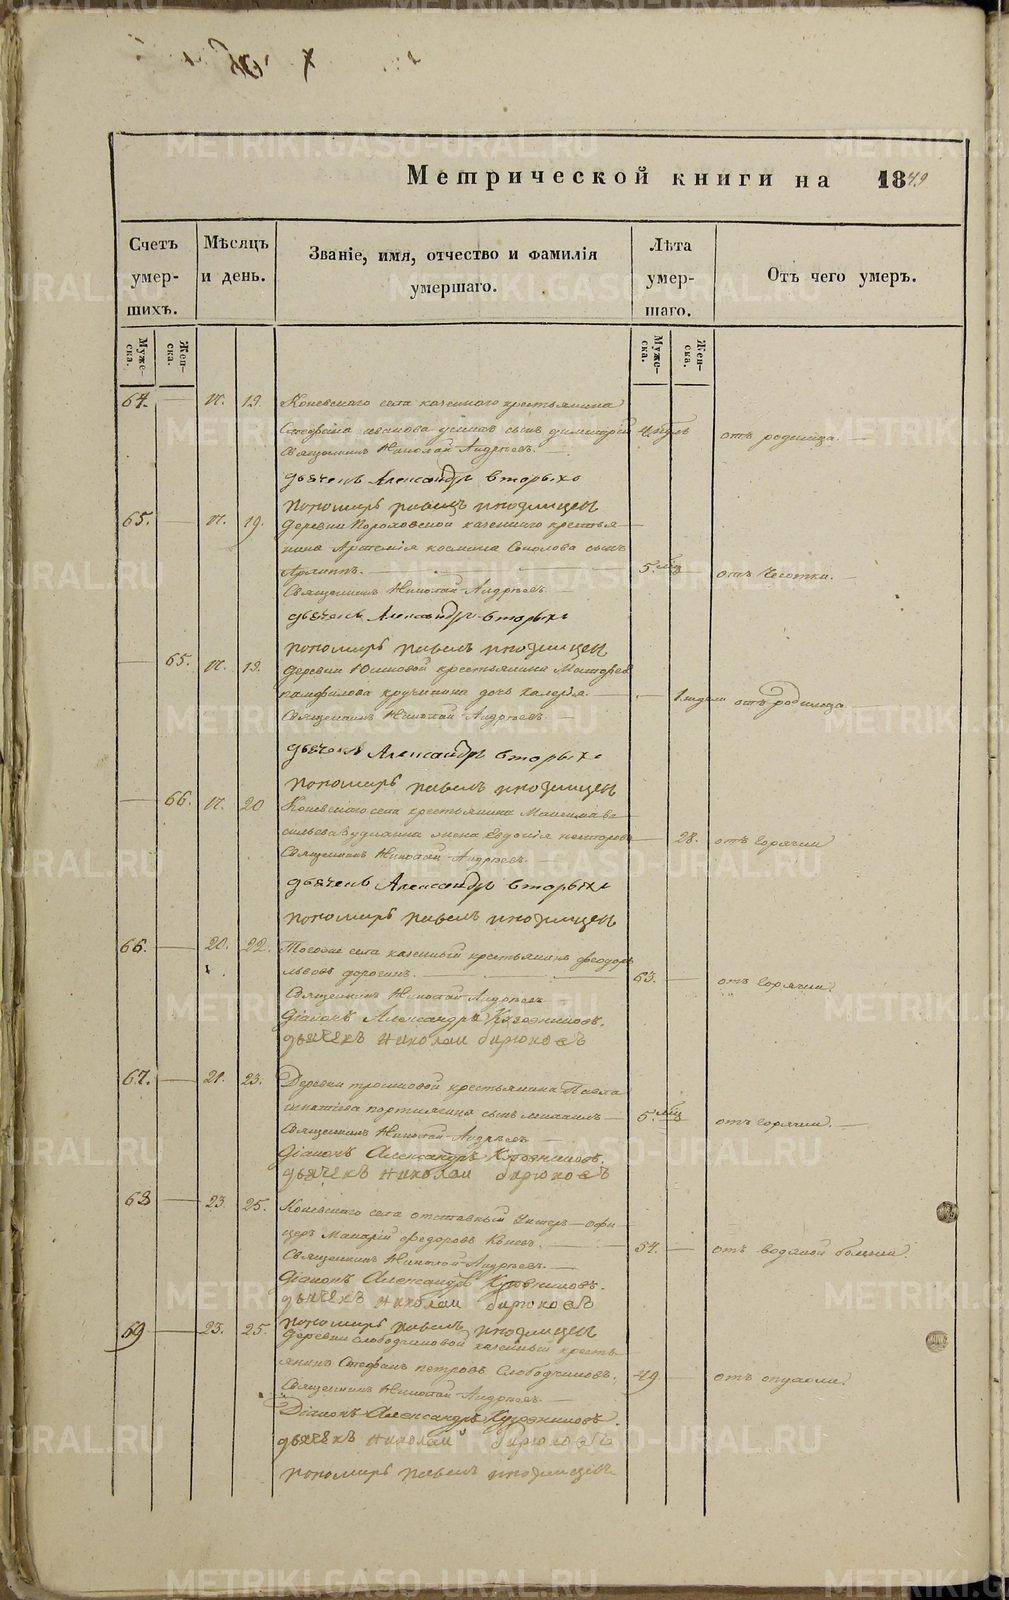 Метрической книги на 1849
Счетъ умершихъ.
Мѣсяцъ и день.
Званіе, имя, отчество и фамилія умершаго.
Лѣта умершаго.
Отъ чего умеръ.
Мужеска.
Женска.
Мужеска.
Женска.
64. 17. 19. Коневскаго села казеннаго крестьянина
Стефана Иванова сынъ Димитрій отъ родимца.
Священникъ Николай Андреевъ.
дьячекъ Александръ Вторыхъ
пономарь Павелъ Иноземцевъ
65. 17. 19. Деревни Пороховской казеннаго крестья
нина Артемія Космина Соколова сынъ
5. мѣц отъ чесотки.
Священникъ Николай Андреевъ.
дьячекъ Александръ Вторыхъ
пономарь Павелъ Иноземцевъ
65. 17. 19. Деревни крестьянина
Памфилова дочь Калерія. 1 недели отъ родимца
Священникъ Николай Андреевъ.
дьячекъ Александръ Вторыхъ
пономарь Павелъ Иноземцевъ
66. 17. 20 Коневскаго села крестьянина Максима Ва
сильева жена Евдокія Нестерова 28. отъ горячки
Священникъ Николай Андреевъ.
дьячекъ Александръ Вторыхъ
пономарь Павелъ Иноземцевъ
66. 20. 22. Тогоже села казенный крестьянинъ Феодоръ
Львовъ Дорогинъ. 63. отъ горячки
Священникъ Николай Андреевъ
Діаконъ Александръ
дьячекъ Николай Бирюковъ
67. 21. 23. Деревни крестьянина Павла
Игнатіева сынъ Михаилъ 5. мѣц отъ горячки.
Священникъ Николай Андреевъ
Діаконъ Александръ
дьячекъ Николай Бирюковъ
68 23. 25. Коневскаго села отставный Унтеръ-офи
церъ Макарій Федоровъ Коневъ. 54. отъ водяной болезни.
Священникъ Николай Андреевъ.
Діаконъ Александръ
дьячекъ Николай Бирюковъ
пономарь Павелъ Иноземцевъ
69 23. 25. Деревни Слободчиковой казенный кресть
янинъ Стефанъ Петровъ Слободчиковъ. 49 отъ опухоли.
Священникъ Николай Андреевъ
Діаконъ Александръ
дьячекъ Николай Бирюковъ
пономарь Павелъ Иноземцевъ
METRIKI.GASO-URAL.RU